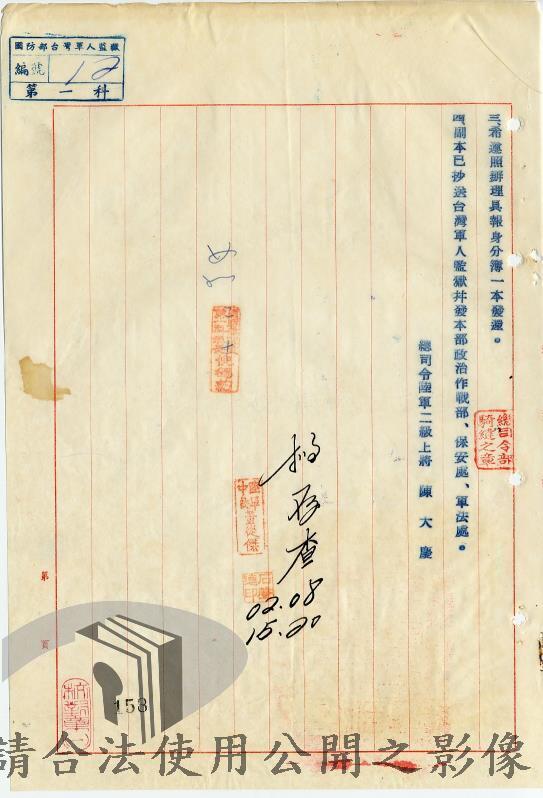 國防部台灣軍人監獄
編號 12
第一科
三、希遵照辦理具報身分簿一本發還。
四、副本已抄送台灣軍人監獄并發本部政治作戰部、保安處、軍法處。
總司令陸軍二級上將 陳大慶
總司令部
騎縫之章
存查
02.08
15.20
第 頁
153
請合法使用公開之影像